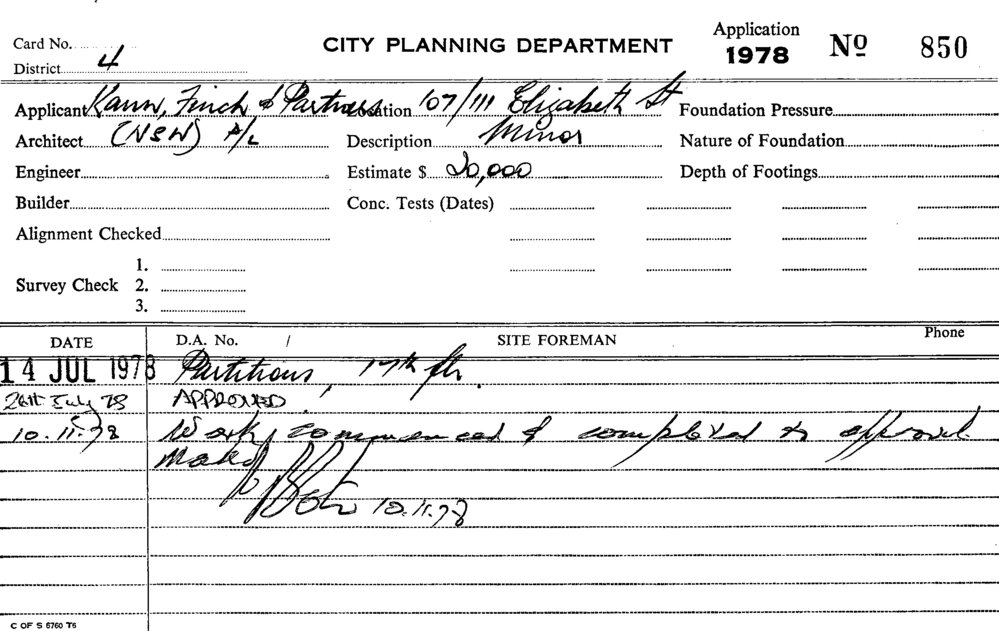 Card No.
District 4
CITY PLANNING DEPARTMENT
Application
1978 Nº 850
Applicant Kann, Finch & Partners Location 107/111 Elizabeth St Foundation Pressure
Architect (NSW) P/L Description Minor Nature of Foundation
Engineer Estimate $ 20,000 Depth of Footings
Builder Conc. Tests (Dates)
Alignment Checked
Survey Check 1.
2.
3.
DATE D.A. No. / SITE FOREMAN Phone
14 JUL 1978 Partitions, 17th flr.
26th July 78 APPROVED
10.11.78 Work commenced & completed to approval
10.11.78
C OF S 6760 T6